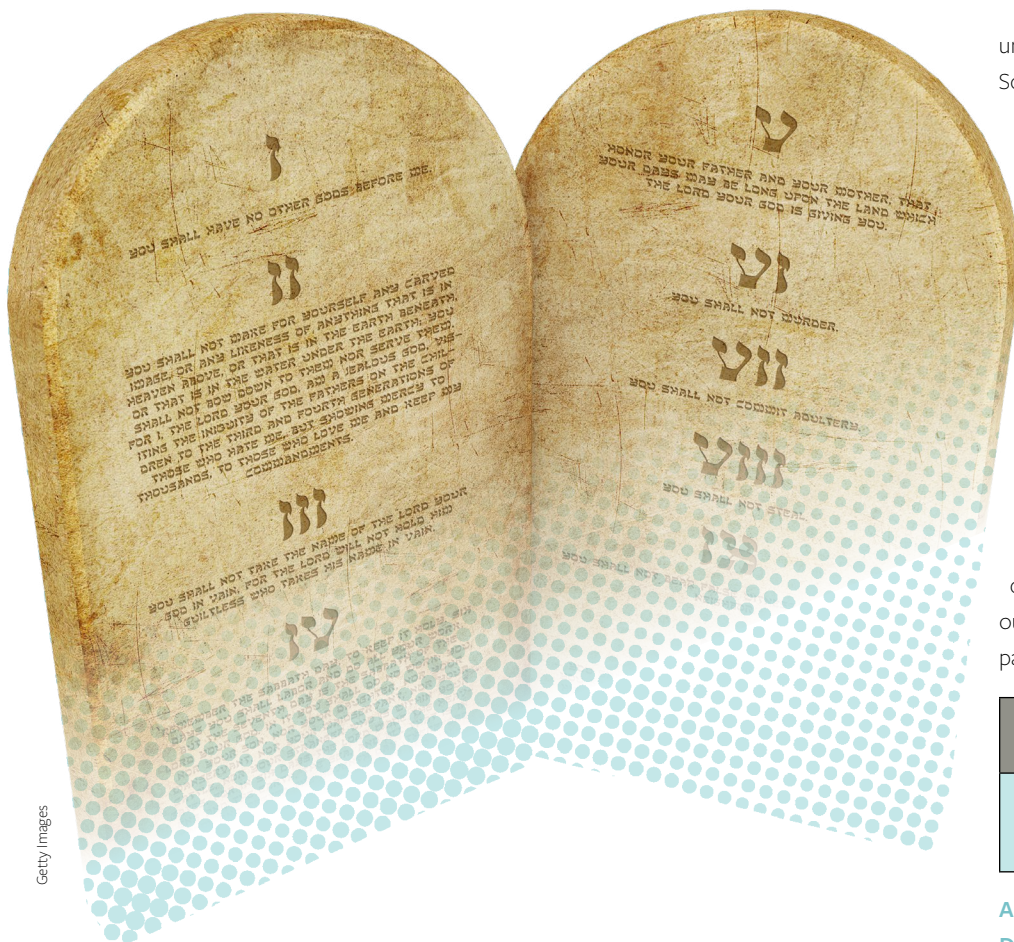 I
YOU SHALL HAVE NO OTHER GODS BEFORE ME.
II
YOU SHALL NOT MAKE FOR YOURSELF ANY CARVED
IMAGE, OR ANY LIKENESS OF ANYTHING THAT IS IN
HEAVEN ABOVE, OR THAT IS IN THE EARTH BENEATH,
OR THAT IS IN THE WATER UNDER THE EARTH; YOU
SHALL NOT BOW DOWN TO THEM NOR SERVE THEM.
FOR I, THE LORD YOUR GOD, AM A JEALOUS GOD, VIS-
ITING THE INIQUITY OF THE FATHERS ON THE CHIL-
DREN TO THE THIRD AND FOURTH GENERATIONS OF
THOSE WHO HATE ME, BUT SHOWING MERCY TO
THOUSANDS, TO THOSE WHO LOVE ME AND KEEP MY
COMMANDMENTS.
III
YOU SHALL NOT TAKE THE NAME OF THE LORD YOUR
GOD IN VAIN, FOR THE LORD WILL NOT HOLD HIM
GUILTLESS WHO TAKES HIS NAME IN VAIN.
IV
REMEMBER THE SABBATH DAY, TO KEEP IT HOLY. SIX
DAYS YOU SHALL LABOR AND DO ALL YOUR WORK
V
HONOR YOUR FATHER AND YOUR MOTHER, THAT
YOUR DAYS MAY BE LONG UPON THE LAND WHICH
THE LORD YOUR GOD IS GIVING YOU.
VI
YOU SHALL NOT MURDER.
VII
YOU SHALL NOT COMMIT ADULTERY.
VIII
YOU SHALL NOT STEAL.
IX
YOU SHALL NOT
Getty Images
So
ou
pa
A